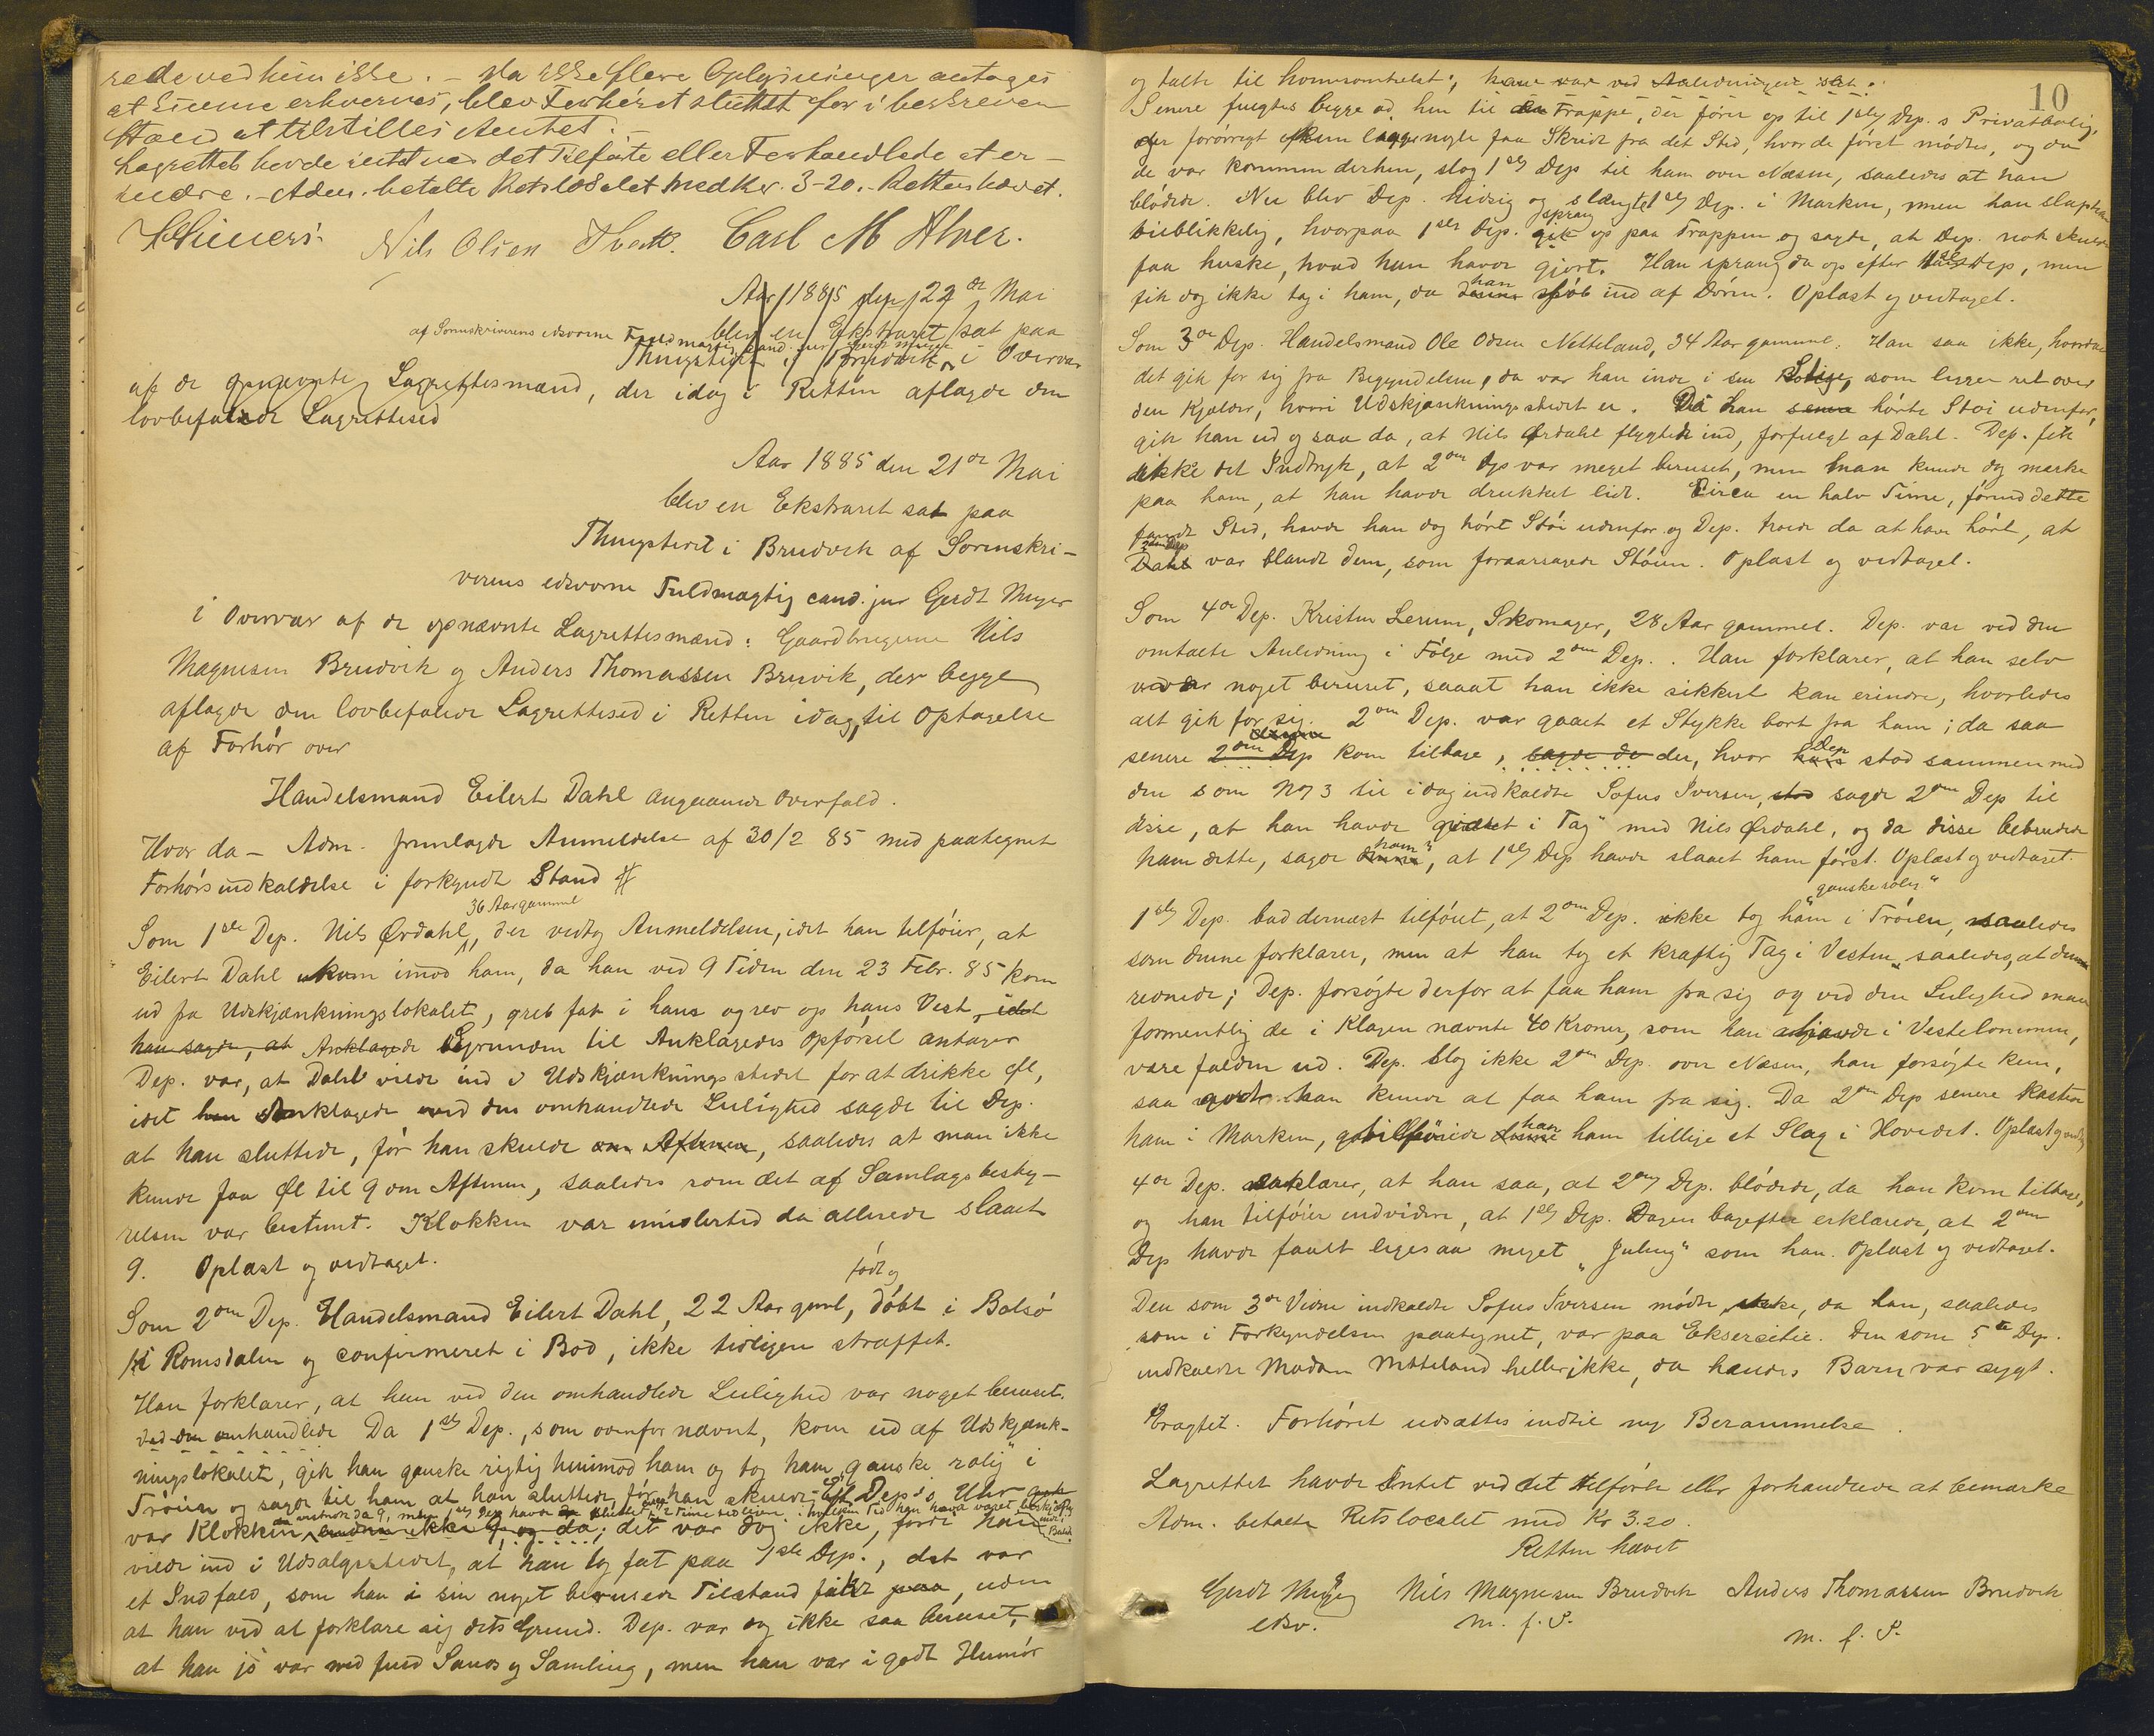 rede ved hiin isse. – Da ikke flere Oplysninger antages
at kunne erhverves, blev Forhöret sluttet for i beskreven
Stand at tilstilles Amtet. –
Lagrettet havde intet ved det Tilförte eller Forhandlede at er-
indre. – Adm. betalte Retslokalet med Kr. 3-20. – Retten hævet.
Nils Olsen Carl M Alver.
Aar 1885 den 22de Mai
blev en Ekstraret sat paa
af Sorenskriverens edsvorne Fuldmægtig cand. jur Gerdt Meyer
Thingstedet i Brudvik i Overvær
af de opnævnte Lagrettesmænd, der idag i Retten aflagde den
lovbefalede Lagrettesed
Aar 1885 den 21de Mai
blev en Ekstraret sat paa
Thingstedet i Brudvik af Sorenskri-
verens edsvorne Fuldmægtig cand. jur Gerdt Meyer
i Overvær af de opnævnte Lagrettesmænd: Gaardbrugerne Nils
Magnesen Brudvik og Anders Thomassen Bruvik, der begge
aflagde den lovbefalede Lagrettesed i Retten idag, til Optagelse
af Forhör over
Handelsmand Eilert Dahl angaaende Overfald.
Hvor da – Adm. fremlagde Anmeldelse af 30/2 85 med paategnet
Forhörsindkaldelse i forkyndt Stand #
36 Aar gammel
Som 1ste Dep. Nils Ørdahl, der vedtog Anmeldelsen, idet han tilföier, at
Eilert Dahl kom imod ham, da han ved 9 Tiden den 23 Febr. 85 kom
ud fra Udskjænkningslokalet, greb fat i hans og rev op hans Vest, idet
han sagde, at Anklagede Grunden til Anklagedes Opförsel antager
Dep. var, at Dahl vilde ind i Udskjænkningsstedet for at drikke Øl,
idet han Anklagede ved den omhandlede Leilighed sagde til Dep.
at han sluttede, för han skulde om Aftenen, saaledes at man ikke
kunde faa Øl til 9 om Aftenen, saaledes som det af Samlagsbesty-
relsen var bestemt. Klokken var imidlertid da allerede slaaet
9. Oplæst og vedtaget.
födt og
Som 2den Dep. Handelsmand Eilert Dahl, 22 Aar gml, döbt i Bolsö
i Romsdalen og confirmeret i Bod, ikke tidligere straffet.
Han forklarer, at han ved den omhandlede Leilighed var noget beruset.
ved den omhandlede Da 1ste Dep., som ovenfor nævnt, kom ud af Udskjænk-
ningslokalet, gik han ganske rigtig henimod ham og tog ham "ganske rolig" i
Tröien og sagde til ham at han sluttede, för han skulde; Dep.s Uhr
var Klokken endnu ikke 9 og da; det var dog ikke, fordi han
vilde ind i Udsalgsstedet, at han tog fat paa 1ste Dep., det var
et Indfald, som han i sin noget berusede Tilstand fik, uden
at han ved at forklare sig dets Grund. Dep. var dog ikke saa beruset,
at han jo var ved fuld Sands og Samling, men han var i godt Humör
10
og talte til hvemsomhelst; han var ved Anledningen
Senere fulgtes begge ad hen til en Trappe, der förer op til 1ste Dep.s Privatbolig,
der forövrigt kun laa nogle faa Skridt fra det Sted, hvor de först mödtes, og da
de var kommen derhen, slog 1ste Dep til ham over Næsen, saaledes at han
blödede. Nu blev Dep. hidsig og slængte 1ste Dep. i Marken, men han slap ham
öieblikkelig, hvorpaa 1ste Dep. sprang op paa Trappen og sagde, at Dep. nok skulde
faa huske, hvad han havde gjort. Han sprang da op efter 1ste Dep, men
fik dog ikke tag i ham, da han slöb ind af Dören. Oplæst og vedtaget.
Som 3de Dep. Handelsmand Ole Odsen Netteland, 34 Aar gammel. Han saa ikke, hvordan
det gik for sig fra Begyndelsen, da var han inde i sin Bolig, som ligger ret over
den Kjælder, hvori Udskjænkningsstedet er. Da han senere hörte Stöi udenfor,
gik han ud og saa da, at Nils Ørdahl flygtede ind, forfulgt af Dahl. Dep. fik
ikke det Indtryk, at 2den Dep var meget beruset, men man kunde dog mærke
paa ham, at han havde drukket lidt. Circa en halv Time, förend dette
fandt Sted, havde han dog hört Stöi udenfor og Dep. troede da at have hört, at
2den Dep
Dahl var blandt dem, som foraarsagede Stöien. Oplæst og vedtaget.
Som 4de Dep. Kristen Lerum, Skomager, 28 Aar gammel. Dep. var ved den
omtalte Anledning i Fölge med 2den Dep.. Han forklarer, at han selv
var noget beruset, saaat han ikke sikkert kan erindre, hvorledes
alt gik for sig. 2den Dep. var gaaet et Stykke bort fra ham; da saa
senere 2den Dep kom tilbage, sagde de der, hvor Dep stod sammen med
den som No 3 til idag indkaldte Sofus Iversen, stod sagde 2den Dep til
disse, at han havde "været i Tag" med Nils Ørdahl, og da disse bebreidede
ham dette, sagde han, at 1ste Dep havde slaaet ham först. Oplæst og vedtaget.
"ganske rolig"
1ste Dep. bad dernæst tilföiet, at 2den Dep. ikke tog ham i Tröien, saaledes
som denne forklarer, men at han tog et kraftig Tag i Vesten, saaledes, at denne
revnede; Dep. forsögte derfor at faa ham fra sig og ved den Leilighed maa
formentlig de i Klagen nævnte 40 Kroner, som han havde i Vestelommen,
være falden ud. Dep. slog ikke 2den Dep. over Næsen, han forsögte kun,
saa godt han kunde at faa ham fra sig. Da 2den Dep senere kastede
ham i Marken, tilföiede han ham tillige et Slag i Hovedet. Oplæst og vedt.
4de Dep. erklærer, at han saa, at 2den Dep. blödede, da han kom tilbage,
og han tilföier endvidere, at 1ste Dep. Dagen bagefter erklærede, at 2den
Dep havde faaet ligesaa meget "Juling" som han. Oplæst og vedtaget.
Den som 3de Vidne indkaldte Sofus Iversen mödte ikke, da han, saaledes
som i Forkyndelsen paategnet, var paa Ekserсitie. Den som 5te Dep.
indkaldte Madam Netteland heller ikke, da hendes Barn var sygt.
Eragtet. Forhöret udsættes indtil ny Berammelse.
Lagrettet havde Intet ved det tilförte eller forhandlede at bemærke
Adm. betalte Retslocalet med Kr 3.20.
Retten hævet
Gerdt Meyer Nils Magnesen Brudvik Anders Thomassen Brudvik
edsv. m. f. P. m. f. P.